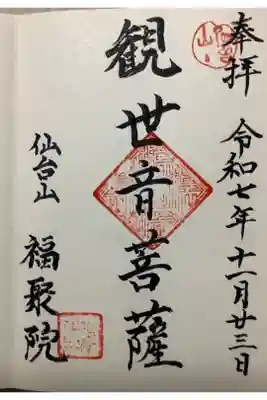 奉拝
令和七年十一月廿三日
観世音菩薩
仙台山
福聚院